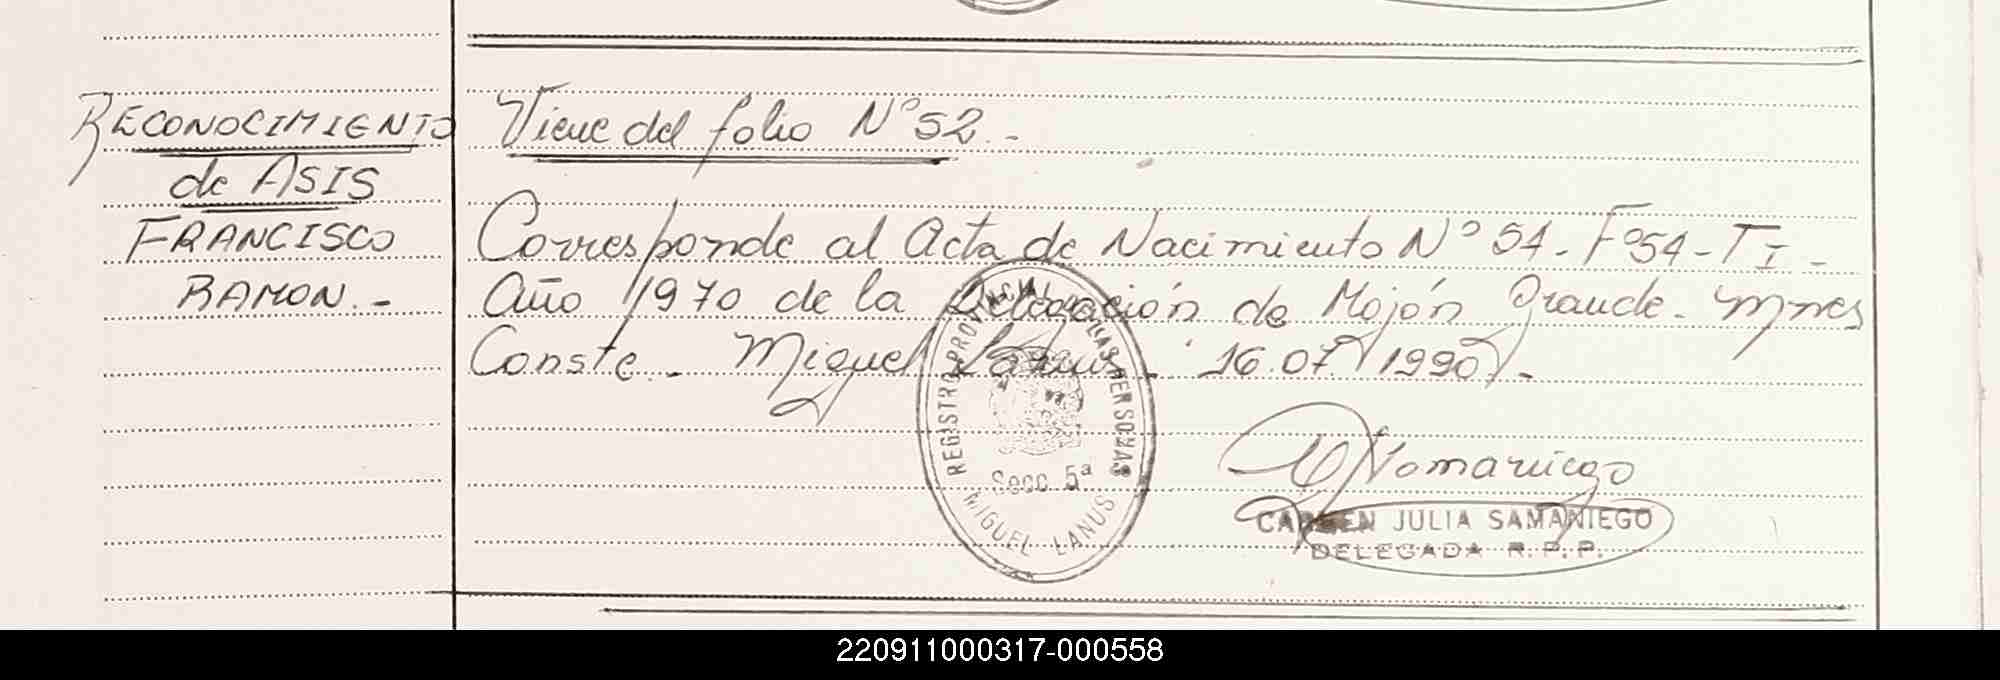 RECONOCIMIENTO
de ASIS
FRANCISCO
RAMON.-
Viene del folio N° 52.-
Corresponde al Acta de Nacimiento N° 54- F° 54- T I-
Año 1970 de la Delegación de Mojón Grande- Mnes
Conste.- Miguel Lanus- 16.07.1990.-
REGISTRO PROVINCIAL DE LAS PERSONAS
Secc. 5ª
MIGUEL LANUS
CARMEN JULIA SAMANIEGO
DELEGADA R.P.P.
220911000317-000558